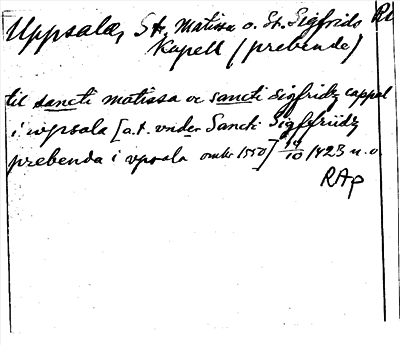 Uppsala, S:t Matissa o. St. Sigfrids
Kapell (prebende)
til sancti matissa oc sancti Sigfridz cappel
i wpsala [a.t. vnder Sancti Sigffridz
prebenda i vpsala omkr 1550] 14/10 1423 n.o.
RAp